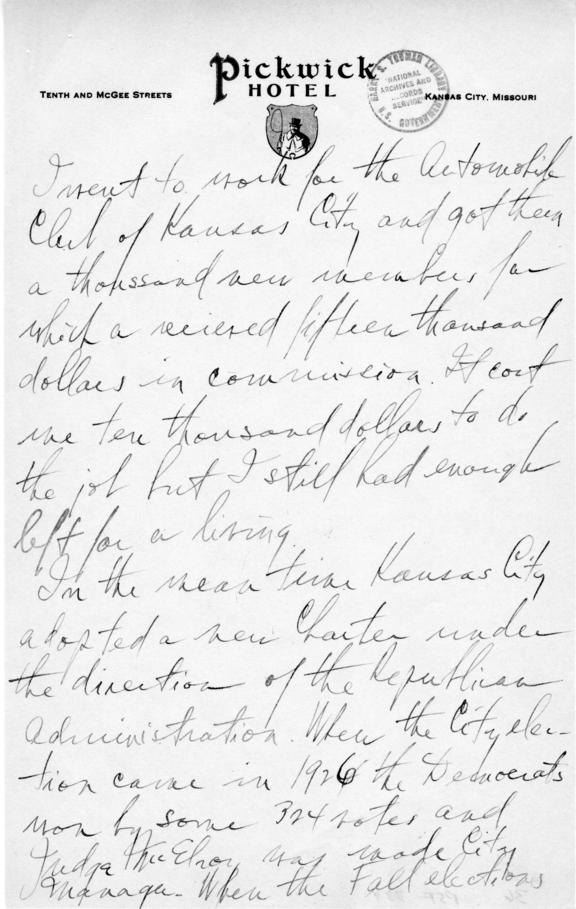 Pickwick
HOTEL
TENTH AND MCGEE STREETS
KANSAS CITY, MISSOURI
HARRY S. TRUMAN LIBRARY
NATIONAL
ARCHIVES AND
RECORDS
SERVICE
U.S. GOVERNMENT
I went to work for the Automobile
Club of Kansas City and got them
a thousand new members for
which a recieved fifteen thousand
dollars in commission. It cost
me ten thousand dollars to do
the job but I still had enough
left for a living.
In the mean time Kansas City
adopted a new Charter under
the direction of the Republican
Administration. When the City elec-
tion came in 1926 the Democrats
won by some 324 votes and
Judge McElroy was made City
Manager. When the Fall elections